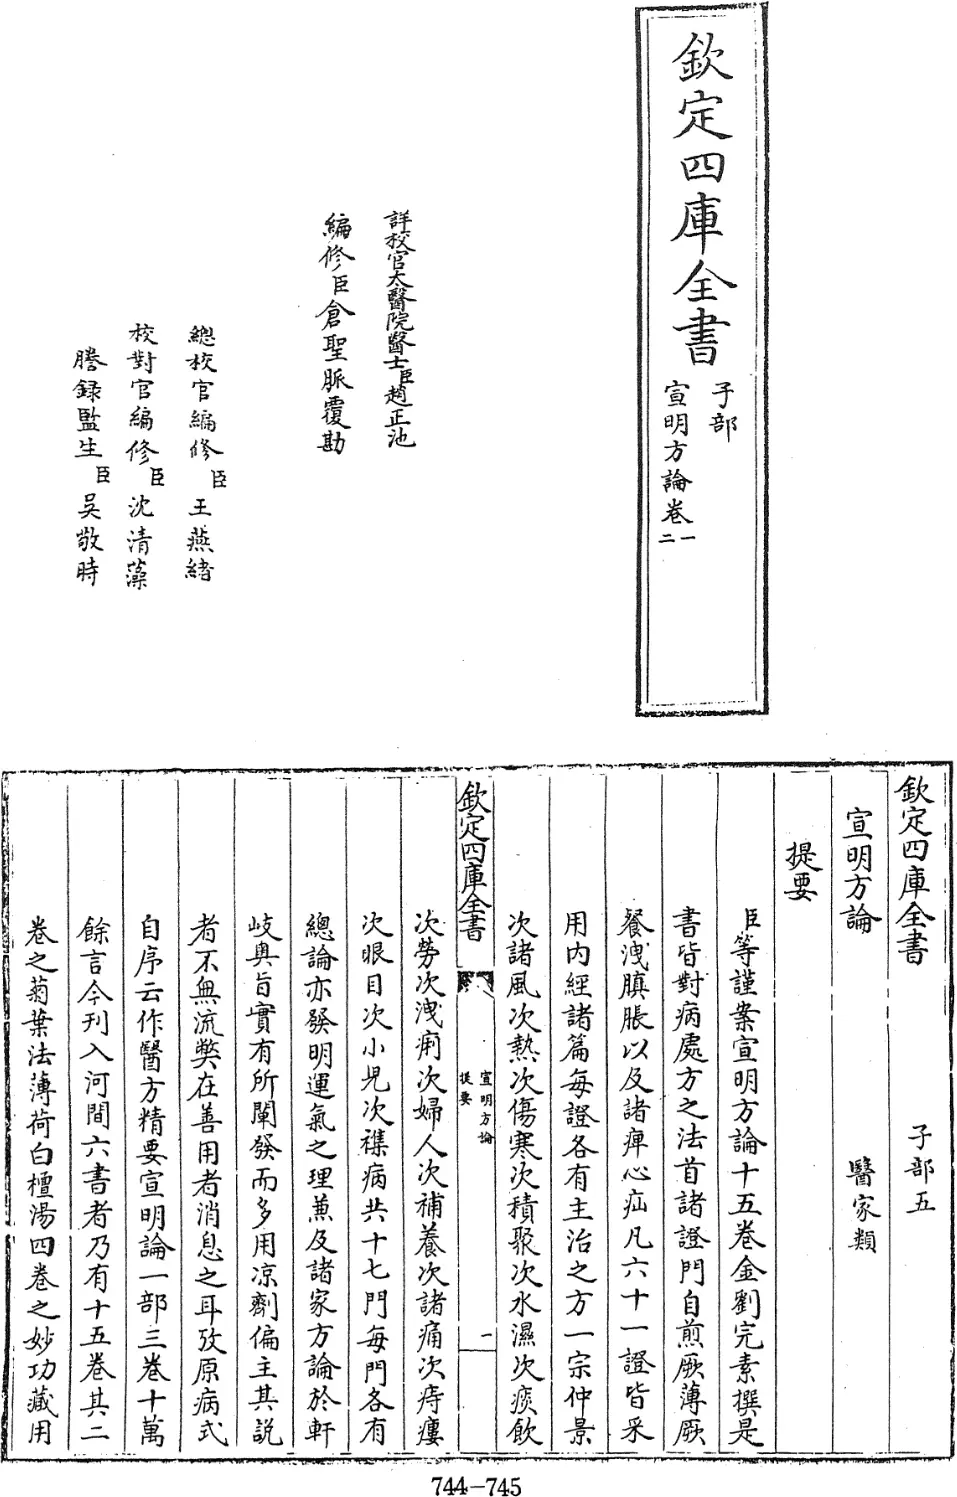 欽定四庫全書
子部
宣明方論卷一
二
詳校官太醫院醫士臣趙正池
編修臣倉聖脈覆勘
總校官編修臣王燕緒
校對官編修臣沈清藻
謄録監生臣吳敬時
欽定四庫全書 子部五
宣明方論 醫家類
提要
臣等謹案宣明方論十五卷金劉完素撰是
書皆對病處方之法首諸證門自煎厥薄厥
飱洩䐜脹以及諸痺心疝凡六十一證皆采
用内經諸篇每證各有主治之方一宗仲景
次諸風次熱次傷寒次積聚次水濕次痰飲
欽定四庫全書
宣明方論
提要
一
次勞次洩痢次婦人次補養次諸痛次痔瘻
次眼目次小兒次襍病共十七門每門各有
總論亦發明運氣之理兼及諸家方論於軒
岐奥旨實有所闡發而多用凉劑偏主其説
者不無流弊在善用者消息之耳攷原病式
自序云作醫方精要宣明論一部三巻十萬
餘言今刋入河間六書者乃有十五卷其二
卷之菊葉法薄荷白檀湯四卷之妙功藏用
744–745